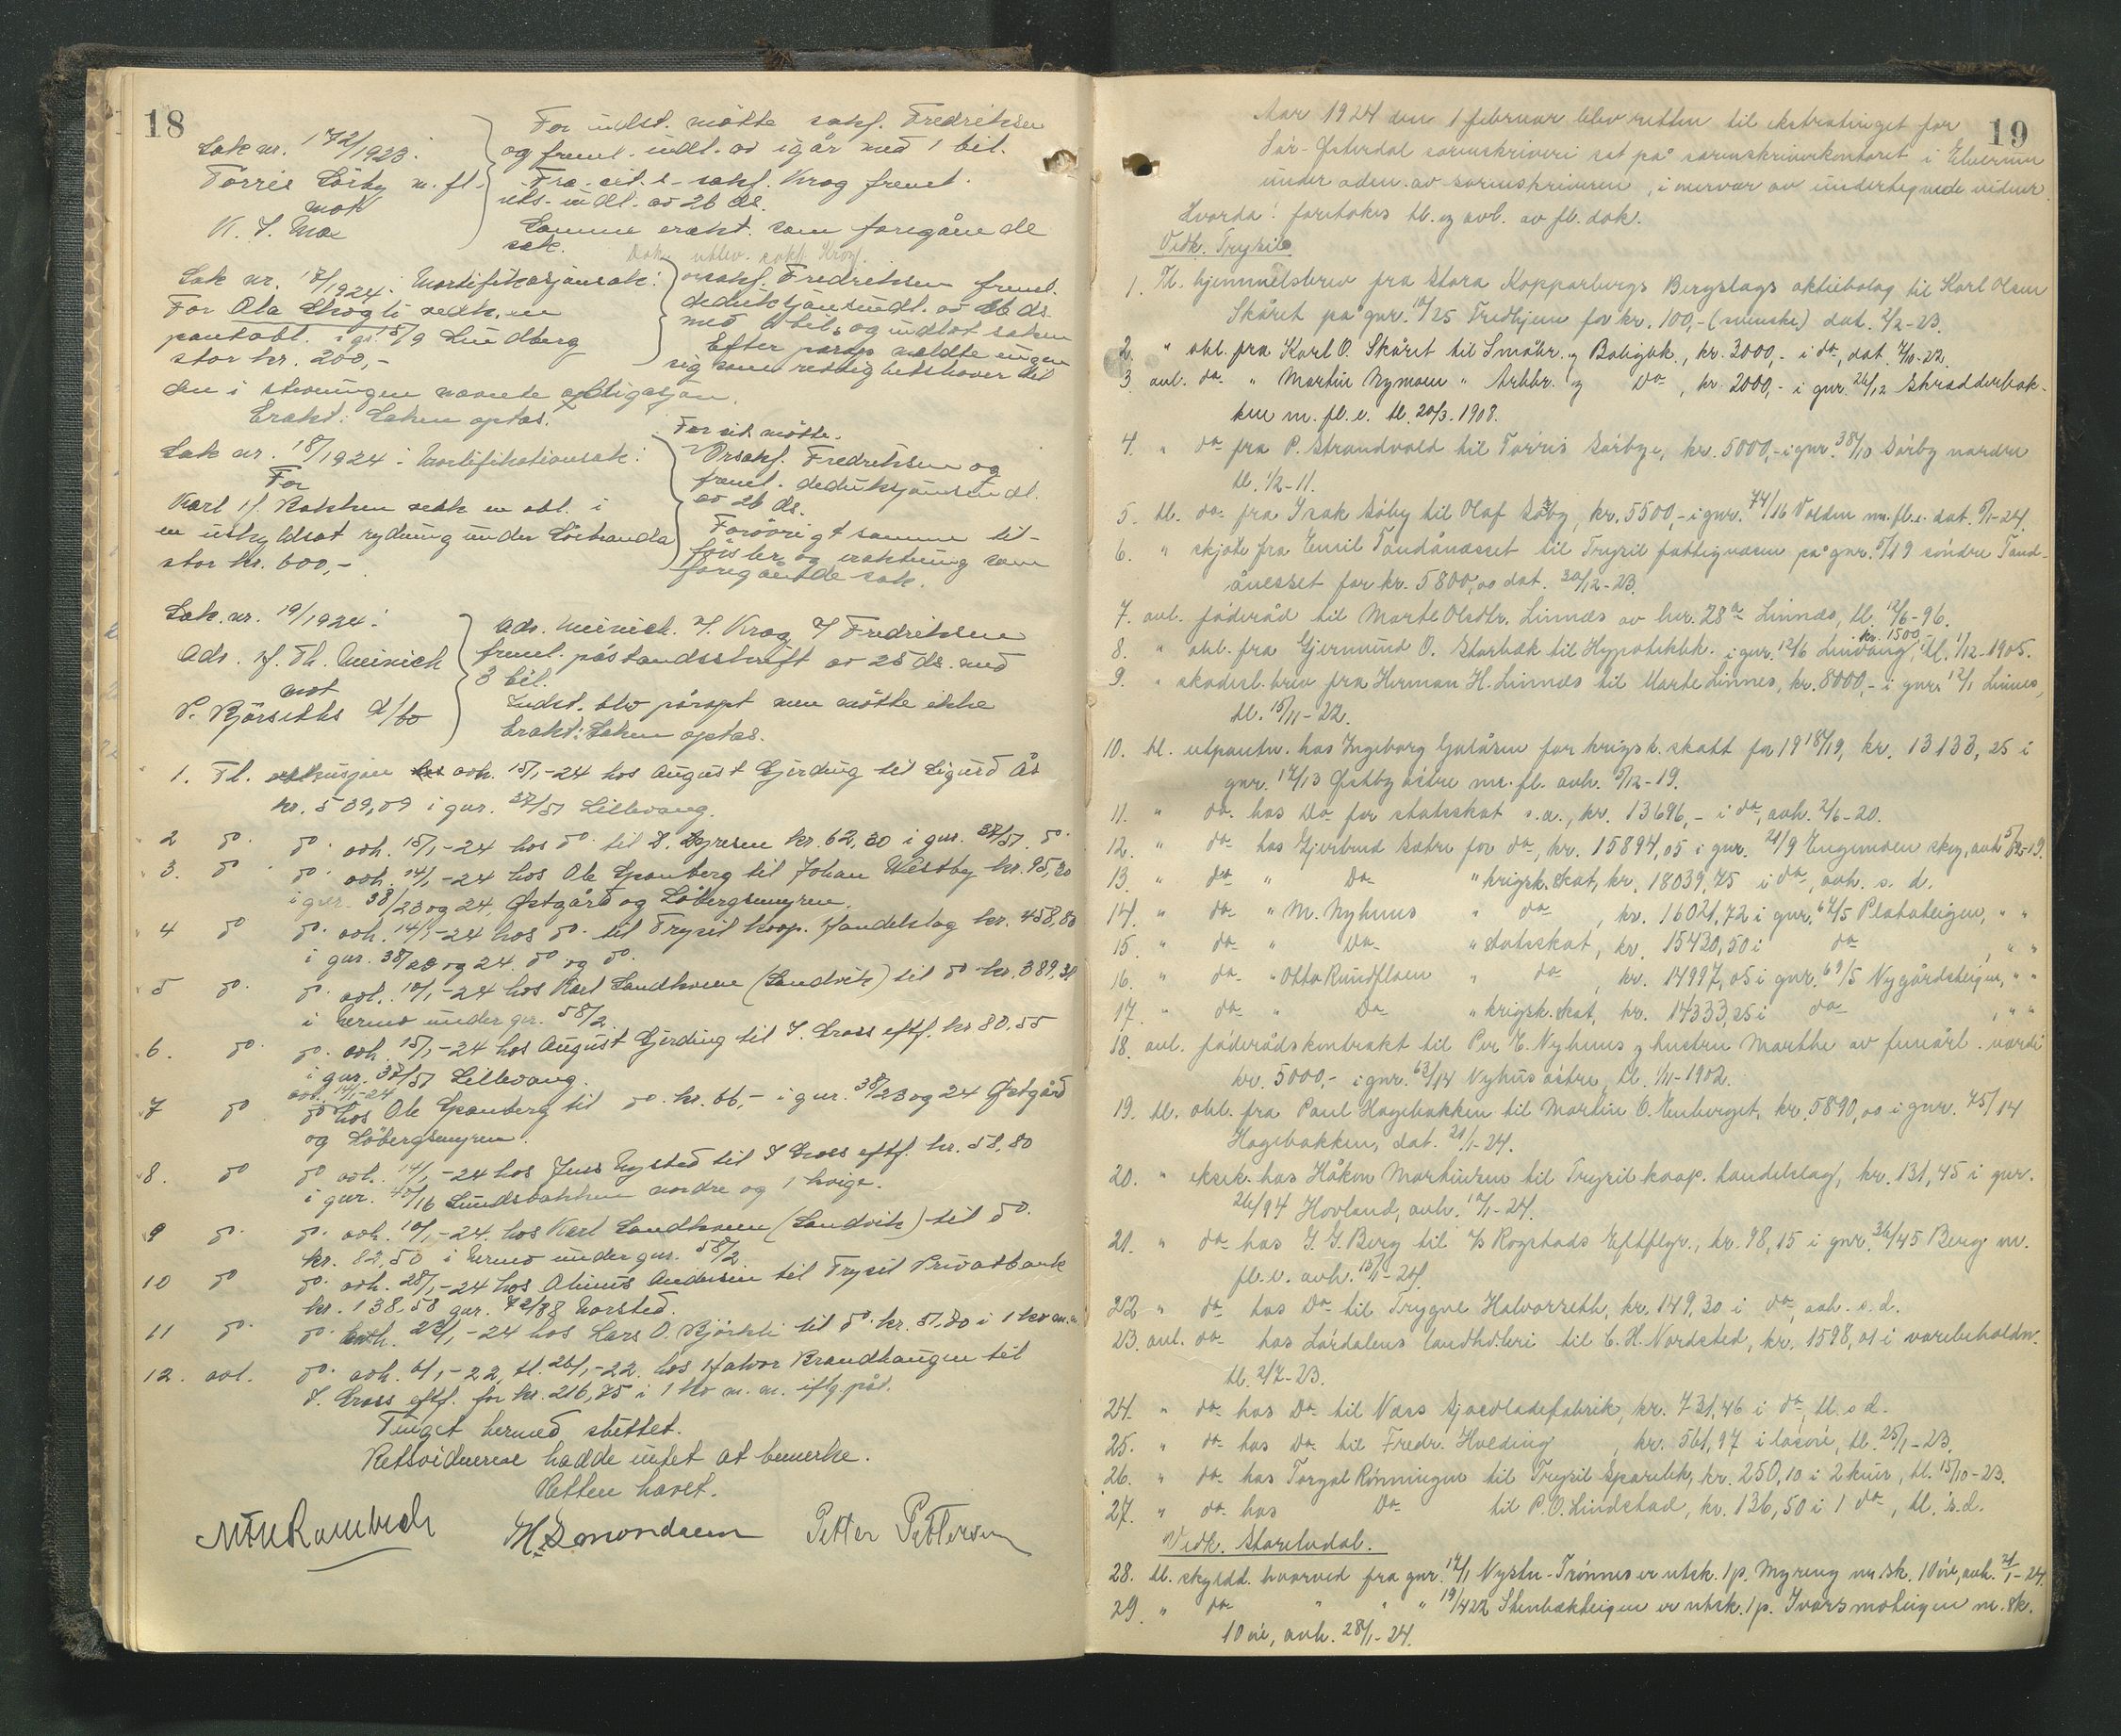 18
Sak nr. 172/1923:
Torris Sörby m. fl.
mot
K. J. Moe
For indst. mötte sakf. Fredriksen
og freml. indl. av igår med 1 bil.
Fra cit. s. sakf. Krog freml.
rets-indl. av 26 ds.
Samme erakt. som foregående
sak.
Dok. utlev. sakf. Krog.
Sak nr. 17/1924: Mortifikasjonssak:
For Ola Skogli vedk. en
pantobl. i gr. 15/9 Lundberg
stor kr. 200,-
orsakf. Fredriksen freml.
deduksjonsindl. av 26 ds.
med bil. og indlot saken
Efter påråp meldte ingen
sig som rettighetshaver til
den i stevningen nævnte obligasjon.
Erakt: Saken optas.
Sak nr. 18/1924: Mortifikationssak:
For
Karl H. Bakken vedk en obl. i
en uskyldsat rydning under Löstranda
stor kr. 600,-
For cit mötte.
Orsakf. Fredriksen og
freml. deduksjonsindl.
av 26 ds.
Forövrigt samme til-
förs ler og eraktning som
foregående sak.
Sak. nr. 19/1924:
Adv. H. Th. Meinich
mot
P. Björseths d/bo
Adv. Meinich. f. Krog f Fredriksen
freml. påstandsskrift av 25 ds. med
3 bil.
Indst. blev påropt men mötte ikke
Erakt: Saken optas.
1. Tl. eksekusjon avh. 15/1-24 hos August Gjerding til Sigurd Ås
kr. 509,09 i gnr. 37/51 Lillevang.
2 do. do. avh. 15/1-24 hos do. til S. Byresen kr. 62,30 i gnr. 37/51. do.
3. do do. avh. 14/1-24 hos Ole Spanberg til Johan Westby kr. 95,20
i gnr. 38/23 og 24, Östgård og Löbergsmyren.
4 do do. avh. 14/1-24 hos do. til Trysil koop. Handelslag kr. 458,80
i gnr. 38/23 og 24. do og do.
5 do. do. avh. 10/1-24 hos Karl Sandhaven (Sandvik) til do kr. 389,31
i Nermo under gnr. 58/2
6. do. do. avh. 15/1-24 hos August Gjerding til J. Cross eftf. kr 80.55
i gnr. 37/51 Lillevang.
avh. 14/1-24
7 do do hos Ole Spanberg til do. kr. 66,- i gnr. 38/23 og 24 Östgård
og Löbergsmyren.
8. do do avh. 14/1-24 hos Jens Nysted til J Cross eftf. kr. 58,80
i gnr. 45/16 Lundsbakken nordre og 1 kvige.
9 do. do. avh. 10/1-24. hos Karl Sandhaven (Sandvik) til do.
kr. 82,50 i Nermo under gnr. 58/2
10 do do. avh. 28/1-24 hos Olinus Andersen til Trysil Privatbank
kr. 138,58 gnr. 72/88 Norsted.
11 do. do. avh. 29/1-24 hos Lars O. Björkli til do. kr. 51,80 i 1 ko m. m
12. avl. do. avh. 6/1-22, tl. 26/1-22. hos Halvor Brandhaugen til
J. Cross eftf. for kr. 216,75 i 1 ko m. m. iflg påt.
Tinget hermed sluttet.
Retsvidnerne hadde intet at bemerke.
Retten hævet.
Petter Pettersen
19
Aar 1924 den 1 februar blev retten til ekstratinget for
Sör-Østerdal sorenskriveri sat på sorenskriverkontoret i Elverum
under adm. av sorenskriveren, i nærvær av undertegnede vidner.
Hvorda: foretokes tl. og avl. av fl. dok.
Vedk. Trysil
1. Tl. hjemmelsbrev fra Stora Kopparbergs Bergslags aktiebolag til Karl Olsen
Skåret på gnr. 10/25 Fredhjem for kr. 100,- (svenske) dat. 2/2-23.
2. " obl. fra Karl O. Skåret til Småbr. og Boligbk., kr. 3000,- i do, dat. 7/10-22.
3 avl. do. " Martin Nymoen " Arbbr. og Do, kr. 2000,- i gnr. 26/12 Skrædderbak-
ken m. fl. e. tl. 20/3. 1908.
4. " do fra P. Strandvold til Torris Sörbye, kr. 5000,- i gnr. 38/10 Sörby nordre
tl. 1/2-11.
5. tl. do fra Isak Söby til Olaf Söby, kr. 5500,- i gnr. 74/16 Volden m. fl. e. dat. 5/1-24.
6. " skjöte fra Emil Tandånæsset til Trysil fattigvæsen på gnr. 5/19 söndre Tand-
ånesset for kr. 5800,00 dat. 20/12-23.
7. avl. föderåd til Marte Olsdtr. Linnæs av lnr. 28a Linnæs, tl. 12/6-96.
8. " obl. fra Gjermund O. Storbæk til Hypotekbk. i gnr. 12/6 Lindvang, kr. 1500,- tl. 1/12-1905.
9. " skadesl. brev fra Herman H. Linnæs til Marte Linnes, kr. 8000,- i gnr. 12/1 Linnes,
tl. 15/11-22.
10. tl. utpantn. hos Ingeborg Galåsen for krigsk. skatt for 1918/19, kr. 13133,25 i
gnr. 17/13 Østby östre m. fl. avh. 5/12-19.
11. " do. hos Do for statsskat s. a., kr. 13696,- i do, avh. 2/6-20.
12. " do hos Gjertrud Sætre for do, kr. 15894,05 i gnr. 21/9 Engemoen skog, avh 5/12-19.
13. " do " Do " krigsk. skat, kr. 18039,75 i do, avh. s. d.
14. " do " M. Nyhuus " do, kr. 16021,72 i gnr. 67/5 Plataleigen, " "
15. " do " Do " statsskat, kr. 15420,50 i do, " "
16. " do " Otto Rundfloen " do, kr. 14997,05 i gnr. 69/5 Nygårdsteigen, " "
17. " do " Do " krigsk. skat, kr. 14333,25 i do, " "
18. avl. föderådskontrakt til Per E. Nyhuus og hustru Marthe av femårl. værdi
kr. 5000,- i gnr. 63/14 Nyhus östre, tl. 1/11-1902.
19. tl. obl. fra Paul Hagebakken til Martin O. Enberget, kr. 5890,00 i gnr. 75/14
Hagebakken, dat. 21/1-24.
20. " eksek. hos Håkon Martinsen til Trysil koop. handelslag, kr. 131,45 i gnr.
26/94 Hovland, avh. 10/1-24.
21. " do hos G. G. Berg til Rogstads Eftflgr., kr. 98,15 i gnr. 36/45 Berg m.
fl. e. avh. 15/1-24.
22 " do hos Do til Trygve Halvorseth, kr. 149,30 i do, avh. s. d.
23. avl. do hos Lördalens landhdleri til C. H. Nordsted, kr. 1598,01 i varebeholdn.
tl. 2/7-23.
24. " do hos Do til Næss Sjocoladefabrik, kr. 731,46 i do, tl. s d.
25. " do hos Do til Fredr. Holding, kr. 561,97 i lösöre, tl. 25/1-23.
26. " do hos Torgal Rønningen til Trysil Sparebk, kr. 250,10 i 2 kuer, tl. 15/10-23.
27. " do hos Do til P. O. Lindstad, kr. 136,50 i 1 do, tl. s. d.
Vedk. Storelvdal.
28. tl. skyldd. hvorved fra gnr. 17/1 Nystu-Trønnes er utsk. 1 p. Myreng m sk. 10 öre, avh. 21/1-24.
29 " do " " " 19/422 Stenbækteigen er utsk. 1 p. Ivarsmoteigen m. sk.
10 öre, avh. 28/1-24.